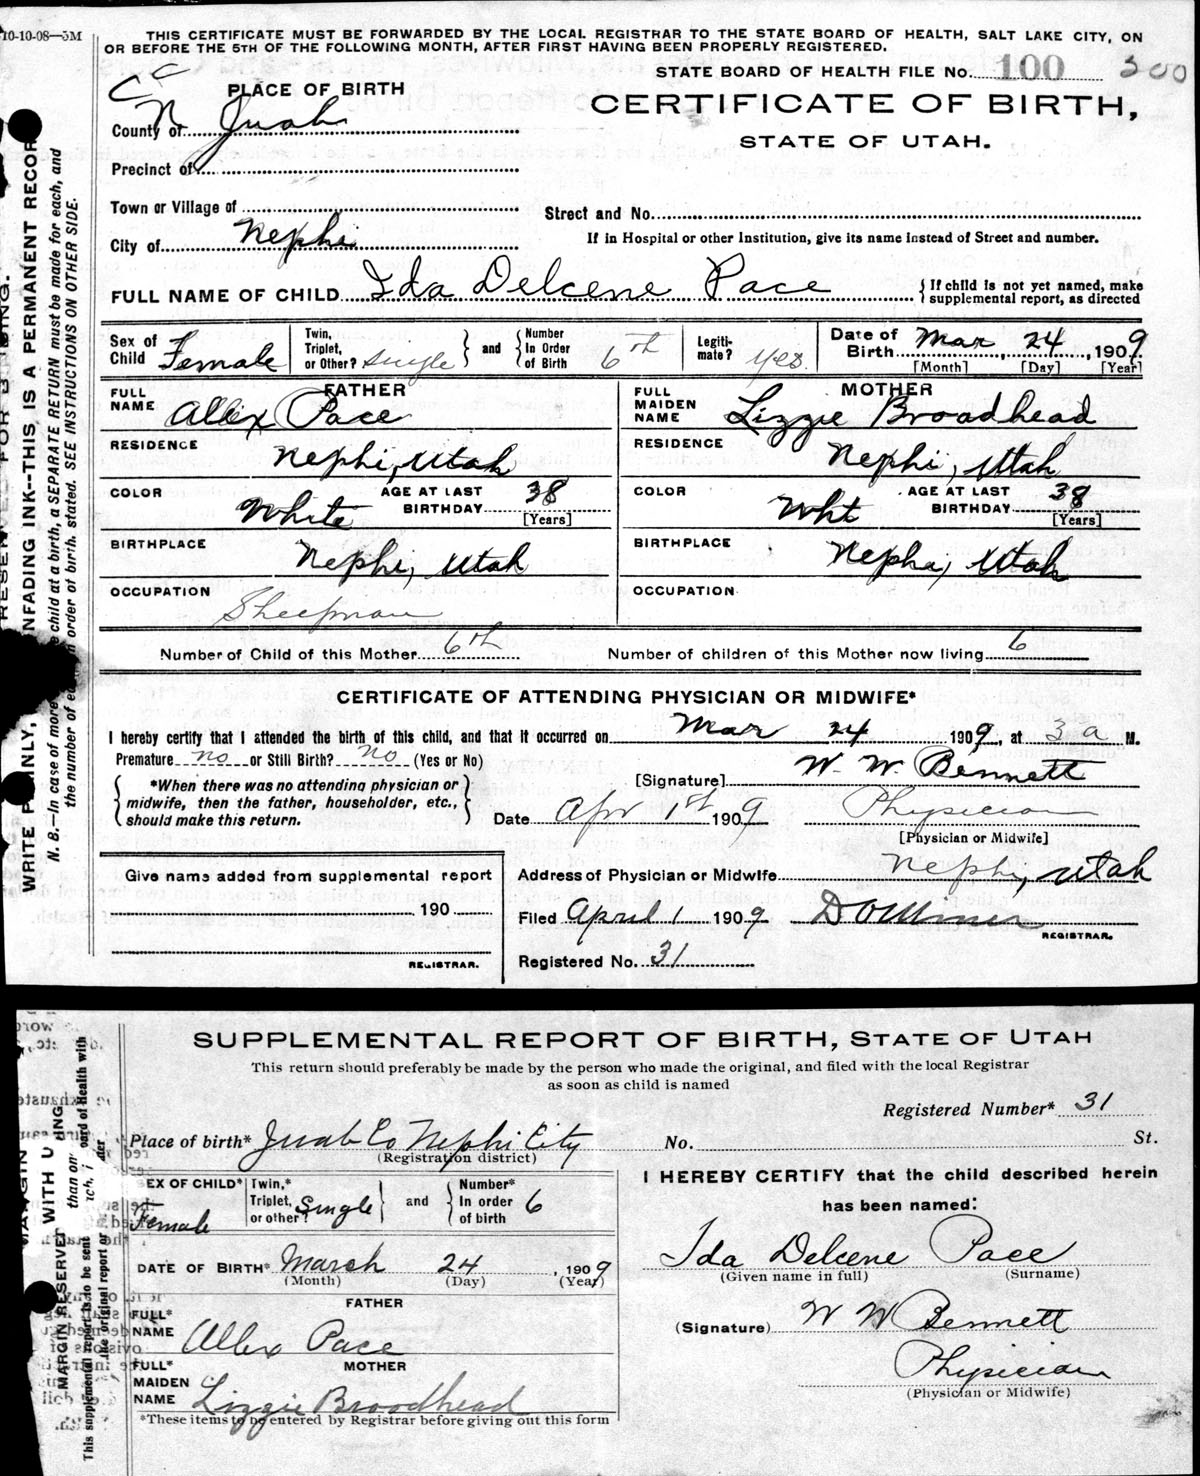 10-10-08—5M
THIS CERTIFICATE MUST BE FORWARDED BY THE LOCAL REGISTRAR TO THE STATE BOARD OF HEALTH, SALT LAKE CITY, ON
OR BEFORE THE 5TH OF THE FOLLOWING MONTH, AFTER FIRST HAVING BEEN PROPERLY REGISTERED.
STATE BOARD OF HEALTH FILE No. 100 300
PLACE OF BIRTH
CERTIFICATE OF BIRTH,
County of Juab
STATE OF UTAH.
Precinct of
Town or Village of
Street and No.
City of Nephi
If in Hospital or other Institution, give its name instead of Street and number.
FULL NAME OF CHILD Ida Delcene Pace { If child is not yet named, make
supplemental report, as directed
Sex of Child Female
Twin, Triplet, or Other? single and Number In Order of Birth 6th
Legiti-mate? yes
Date of Birth Mar 24, 1909
[Month] [Day] [Year]
FATHER MOTHER
FULL NAME Allex Pace
FULL MAIDEN NAME Lizzie Broadhead
RESIDENCE Nephi, Utah
RESIDENCE Nephi, Utah
COLOR White AGE AT LAST BIRTHDAY 38 [Years]
COLOR Wht AGE AT LAST BIRTHDAY 38 [Years]
BIRTHPLACE Nephi, Utah
BIRTHPLACE Nephi, Utah
OCCUPATION Sheepman
OCCUPATION
Number of Child of this Mother 6th Number of children of this Mother now living 6
CERTIFICATE OF ATTENDING PHYSICIAN OR MIDWIFE*
I hereby certify that I attended the birth of this child, and that it occurred on Mar 24 1909, at 3 a M.
Premature no or Still Birth? no (Yes or No)
[Signature] W. W. Bennett
*When there was no attending physician or
midwife, then the father, householder, etc.,
should make this return.
Date Apr 1st 1909 Physician
[Physician or Midwife]
Give name added from supplemental report
Address of Physician or Midwife Nephi, Utah
190
Filed April 1 1909 D O Miner
REGISTRAR.
REGISTRAR.
Registered No. 31
WRITE PLAINLY, NFADING INK--THIS IS A PERMANENT RECOR
N. B.—In case of more child at a birth, a SEPARATE RETURN must be made for each, and
the number of order of birth. stated. SEE INSTRUCTIONS ON OTHER SIDE.
SUPPLEMENTAL REPORT OF BIRTH, STATE OF UTAH
This return should preferably be made by the person who made the original, and filed with the local Registrar
as soon as child is named
Registered Number* 31
Place of birth* Juab Co Nephi City No. St.
(Registration district)
I HEREBY CERTIFY that the child described herein
has been named:
EX OF CHILD* Female
Twin,* Triplet, or other? Single and Number* In order of birth 6
Ida Delcene Pace
(Given name in full) (Surname)
DATE OF BIRTH* March 24, 1909
(Month) (Day) (Year)
FATHER
FULL* NAME Allex Pace
(Signature) W W Bennett
MOTHER
FULL* MAIDEN NAME Lizzie Broadhead
Physician
(Physician or Midwife)
*These items to be entered by Registrar before giving out this form
MARGIN RESERVE
This supplemental report is to be sent
the original report